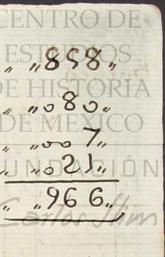 CENTRO DE
ESTUDIOS
DE HISTORIA
DE MEXICO
FUNDACIÓN
Carlos Slim
„ „858„
„ „o80„
„ „oo7„
„ „o21„
„ „966„